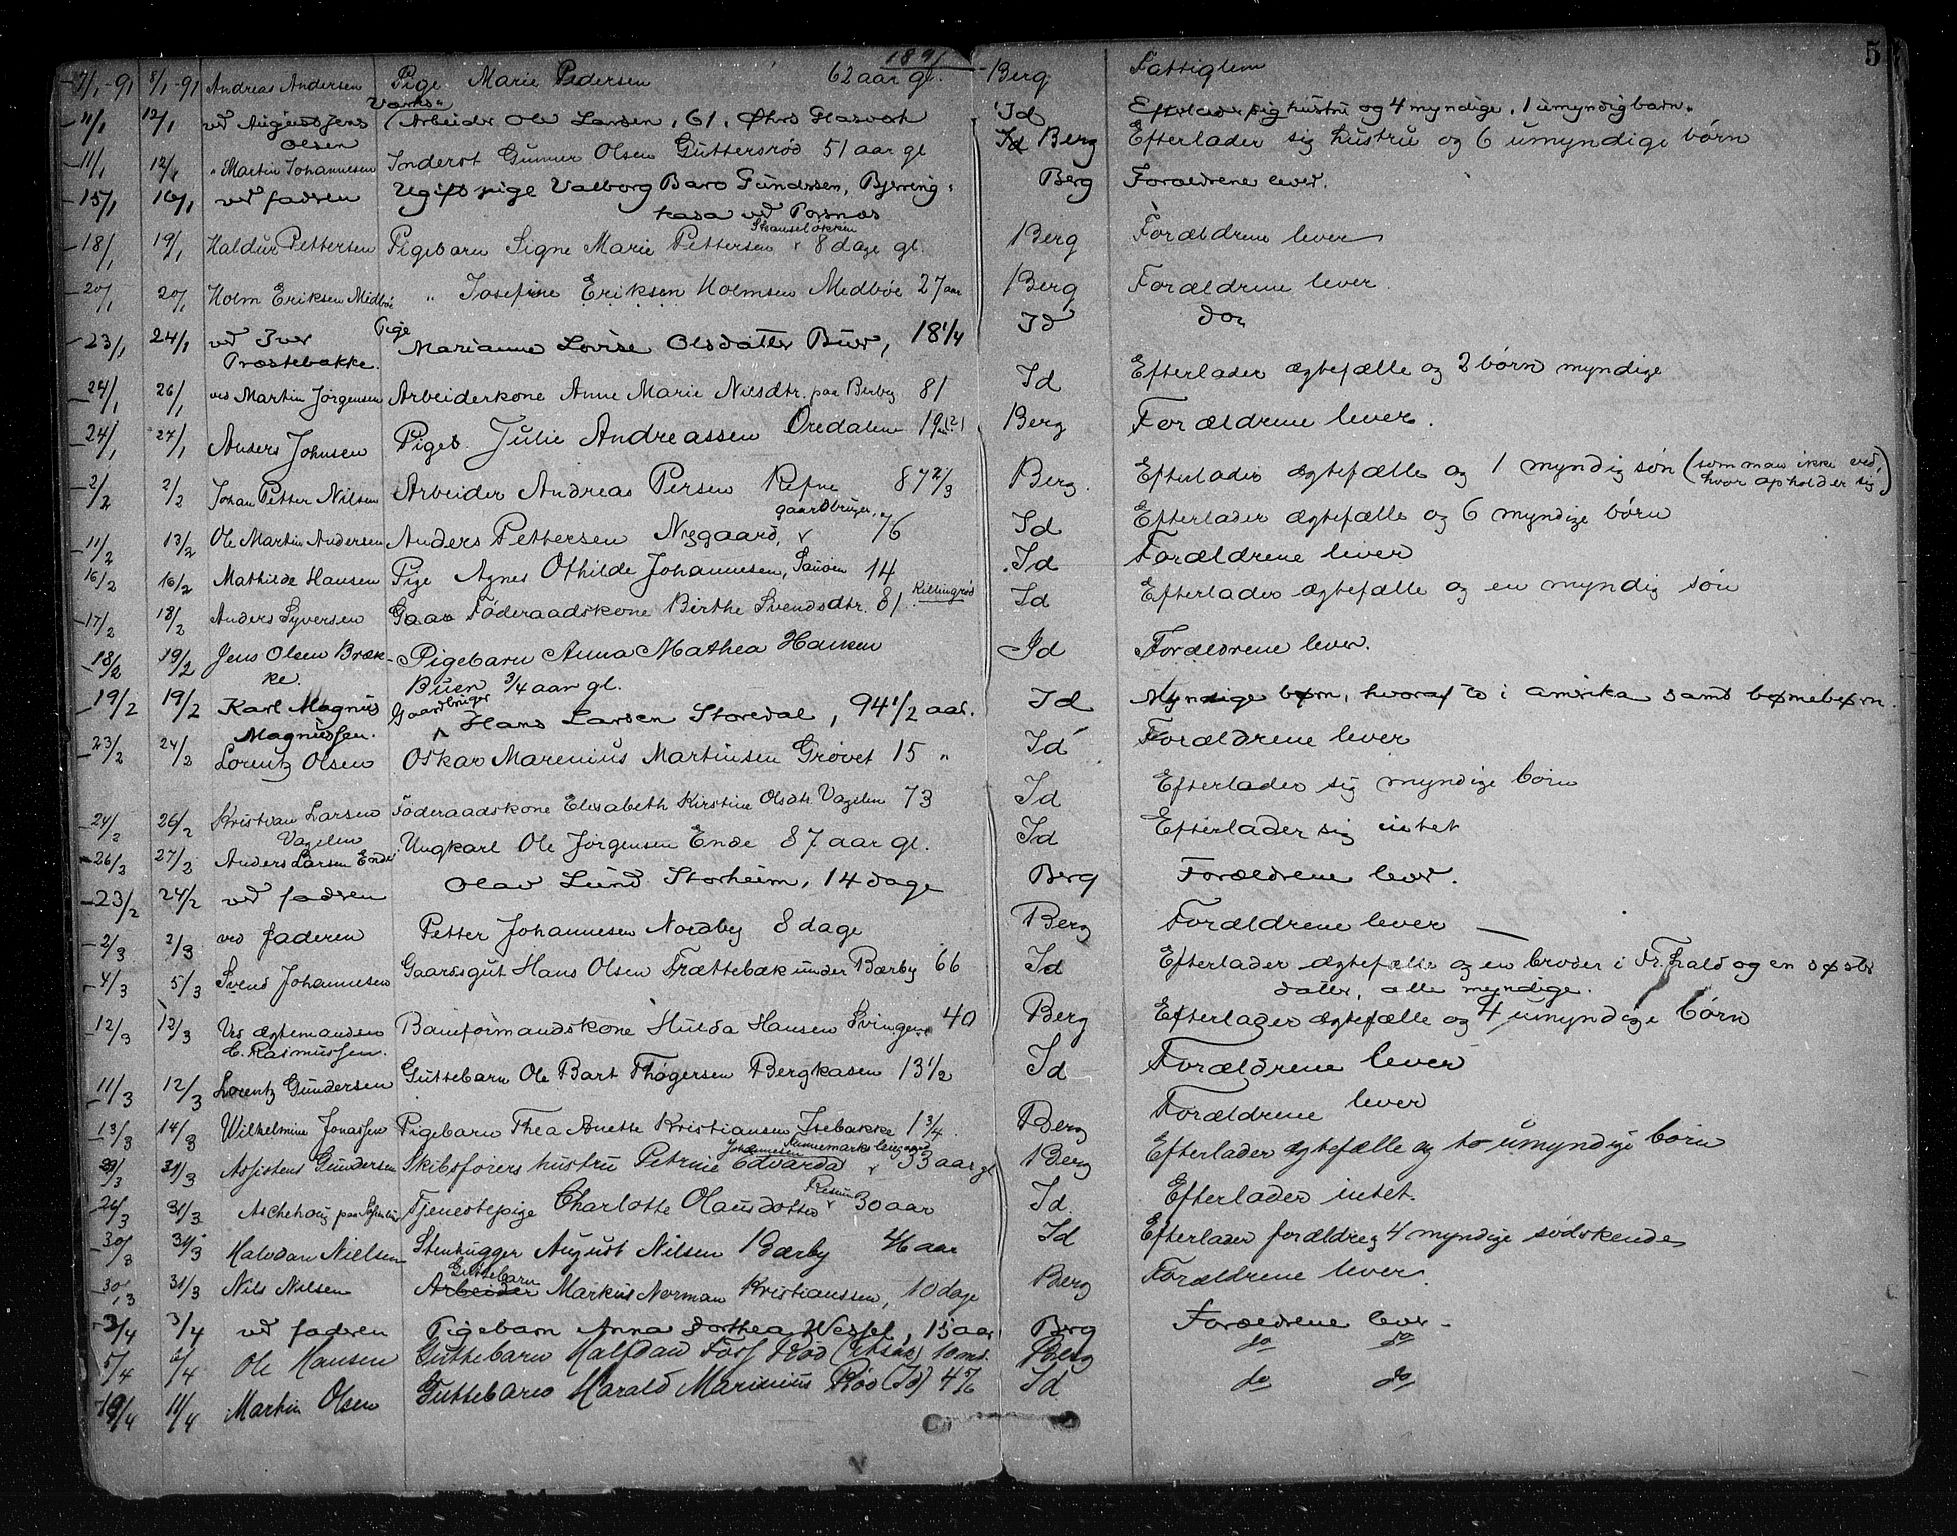 1891 5
7/1-91 8/1-91 Andreas Andersen Pige Marie Pedersen 62 aar gl. Berg Fattiglem
11/1 12/1 ved Augustjens Olsen Arbeider Ole Larsen, 61, Id Efterlader sig hustru og 4 myndige, 1 umyndig barn.
11/1 12/1 " Martin Johannesen Inderst Gunner Olsen Guttersrød 51 aar gl Id Berg Efterlader sig hustru og 6 umyndige børn
15/1 16/1 ved faderen Ugift pige Valborg Baro Gundersen, Bjerring-
kasa ved Torsnæs Berg Forældrene lever.
18/1 19/1 Haldur Pettersen Pigebarn Signe Marie Pettersen Strauseløkken 8 dage gl. Berg Forældrene lever
20/1 20/1 Holm Eriksen Midbøe " Josefine Eriksen Holmsen Medbøe 27 aar Berg Forældrene lever.
23/1 24/1 ved Iver Præstebakke. Pige Marianne Lovise Olsdatter Buer, 18 1/4 Id do
24/1 26/1 ved Martin Jørgensen Arbeiderkone Anne Marie Nilsdtr. paa Berby 81 Id Efterlader ægtefælle og 2 børn myndige
24/1 27/1 Anders Johnsen Pigeb. Julie Andreassen Oredalen 19 Berg Forældrene lever.
2/2 2/2 Johan Petter Nilsen Arbeider Andreas Persen Refne 87 2/3 Berg. Efterlader ægtefælle og 1 myndig søn (som man ikke ved, hvor opholder sig)
11/2 13/2 Ole Martin Andersen Anders Pettersen Nygaard, gaardbruger. 76 Id Efterlader ægtefælle og 6 myndige børn
16/2 16/2 Mathilde Hansen Pige Agnes Othilde Johannesen, Sauøen 14 Id Forældrene lever
17/2 18/2 Anders Syversen Føderaadskone Birthe Svendsdtr. 81 Killingrød Id Efterlader ægtefælle og en myndig søn
18/2 19/2 Jens Olsen Bræk-
ke. Pigebarn Anna Mathea Hansen
Buen 3/4 aar gl. Id Forældrene lever.
19/2 19/2 Karl Magnus Magnussen. Gaardbruger Hans Larsen Storedal, 94 1/2 aar. Id Myndige børn, hvoraf to i amerika samt børnebørn.
23/2 24/2 Lorentz Olsen Oskar Marenius Martinsen Grøvet 15 " Id Forældrene lever
24/2 26/2 Kristian Larsen Vagelen Føderaadskone Elisabeth Kirstine Olsdtr. Vagelen 73 Id Efterlader sig myndige børn
26/2 27/2 Anders Larsen Ende Ungkarl Ole Jørgensen Ende 87 aar gl. Id Efterlader sig intet
23/2 24/2 ved faderen Olav Lund Storheim, 14 dage Berg Forældrene lever.
2/3 2/3 ved faderen Petter Johannesen Nordby 8 dage Berg Forældrene lever
4/3 5/3 Svend Johannesen Gaardsgut Hans Olsen Trættebæk under Bærby 66 Id Efterlader ægtefælle og en broder i Fr.hald og en søster
datter, alle myndige.
12/3 12/3 Ved ægtemanden C. Rasmussen. Baneformandskone Hulda Hansen 40 Berg Efterlader ægtefælle og 4 umyndige børn
11/3 12/3 Lorentz Gundersen Guttebarn Ole Bart Thøgersen Bergkasen 13 1/2 Id Forældrene lever
13/3 14/3 Wilhelmine Jonassen Pigebarn Thea Anette Kristiansen Isebakke 1 3/4. Berg Forældrene lever
29/3 31/3 Assistens Gundersen Skibsførers hustru Petrine Edvarda Johannesen 33 aar gl Berg Efterlader ægtefælle og to umyndige børn
26/3 31/3 Aschehoug Tjenestepige Charlotte Olausdotter 30 aar Id. Efterlader intet.
30/3 31/3 Halvdan Nielsen Stenhugger August Nilsen Bærby 46 aar Id Efterlader forældre og 4 myndige sødskende
30/3 31/3 Nils Nilsen Arbeider Guttebarn Markus Norman Kristianssen, 10 dage Berg Forældrene lever.
3/4 3/4 ved faderen Pigebarn Anna Dorthea Wessel, 15 aar Berg Forældrene lever.
5/4 6/4 Ole Hansen Guttebarn Halfdan Rød 10 md. Berg do do
10/4 11/4 Martin Olsen Guttebarn Harald Marinius Rød (Id) 4 5/6 Id do do